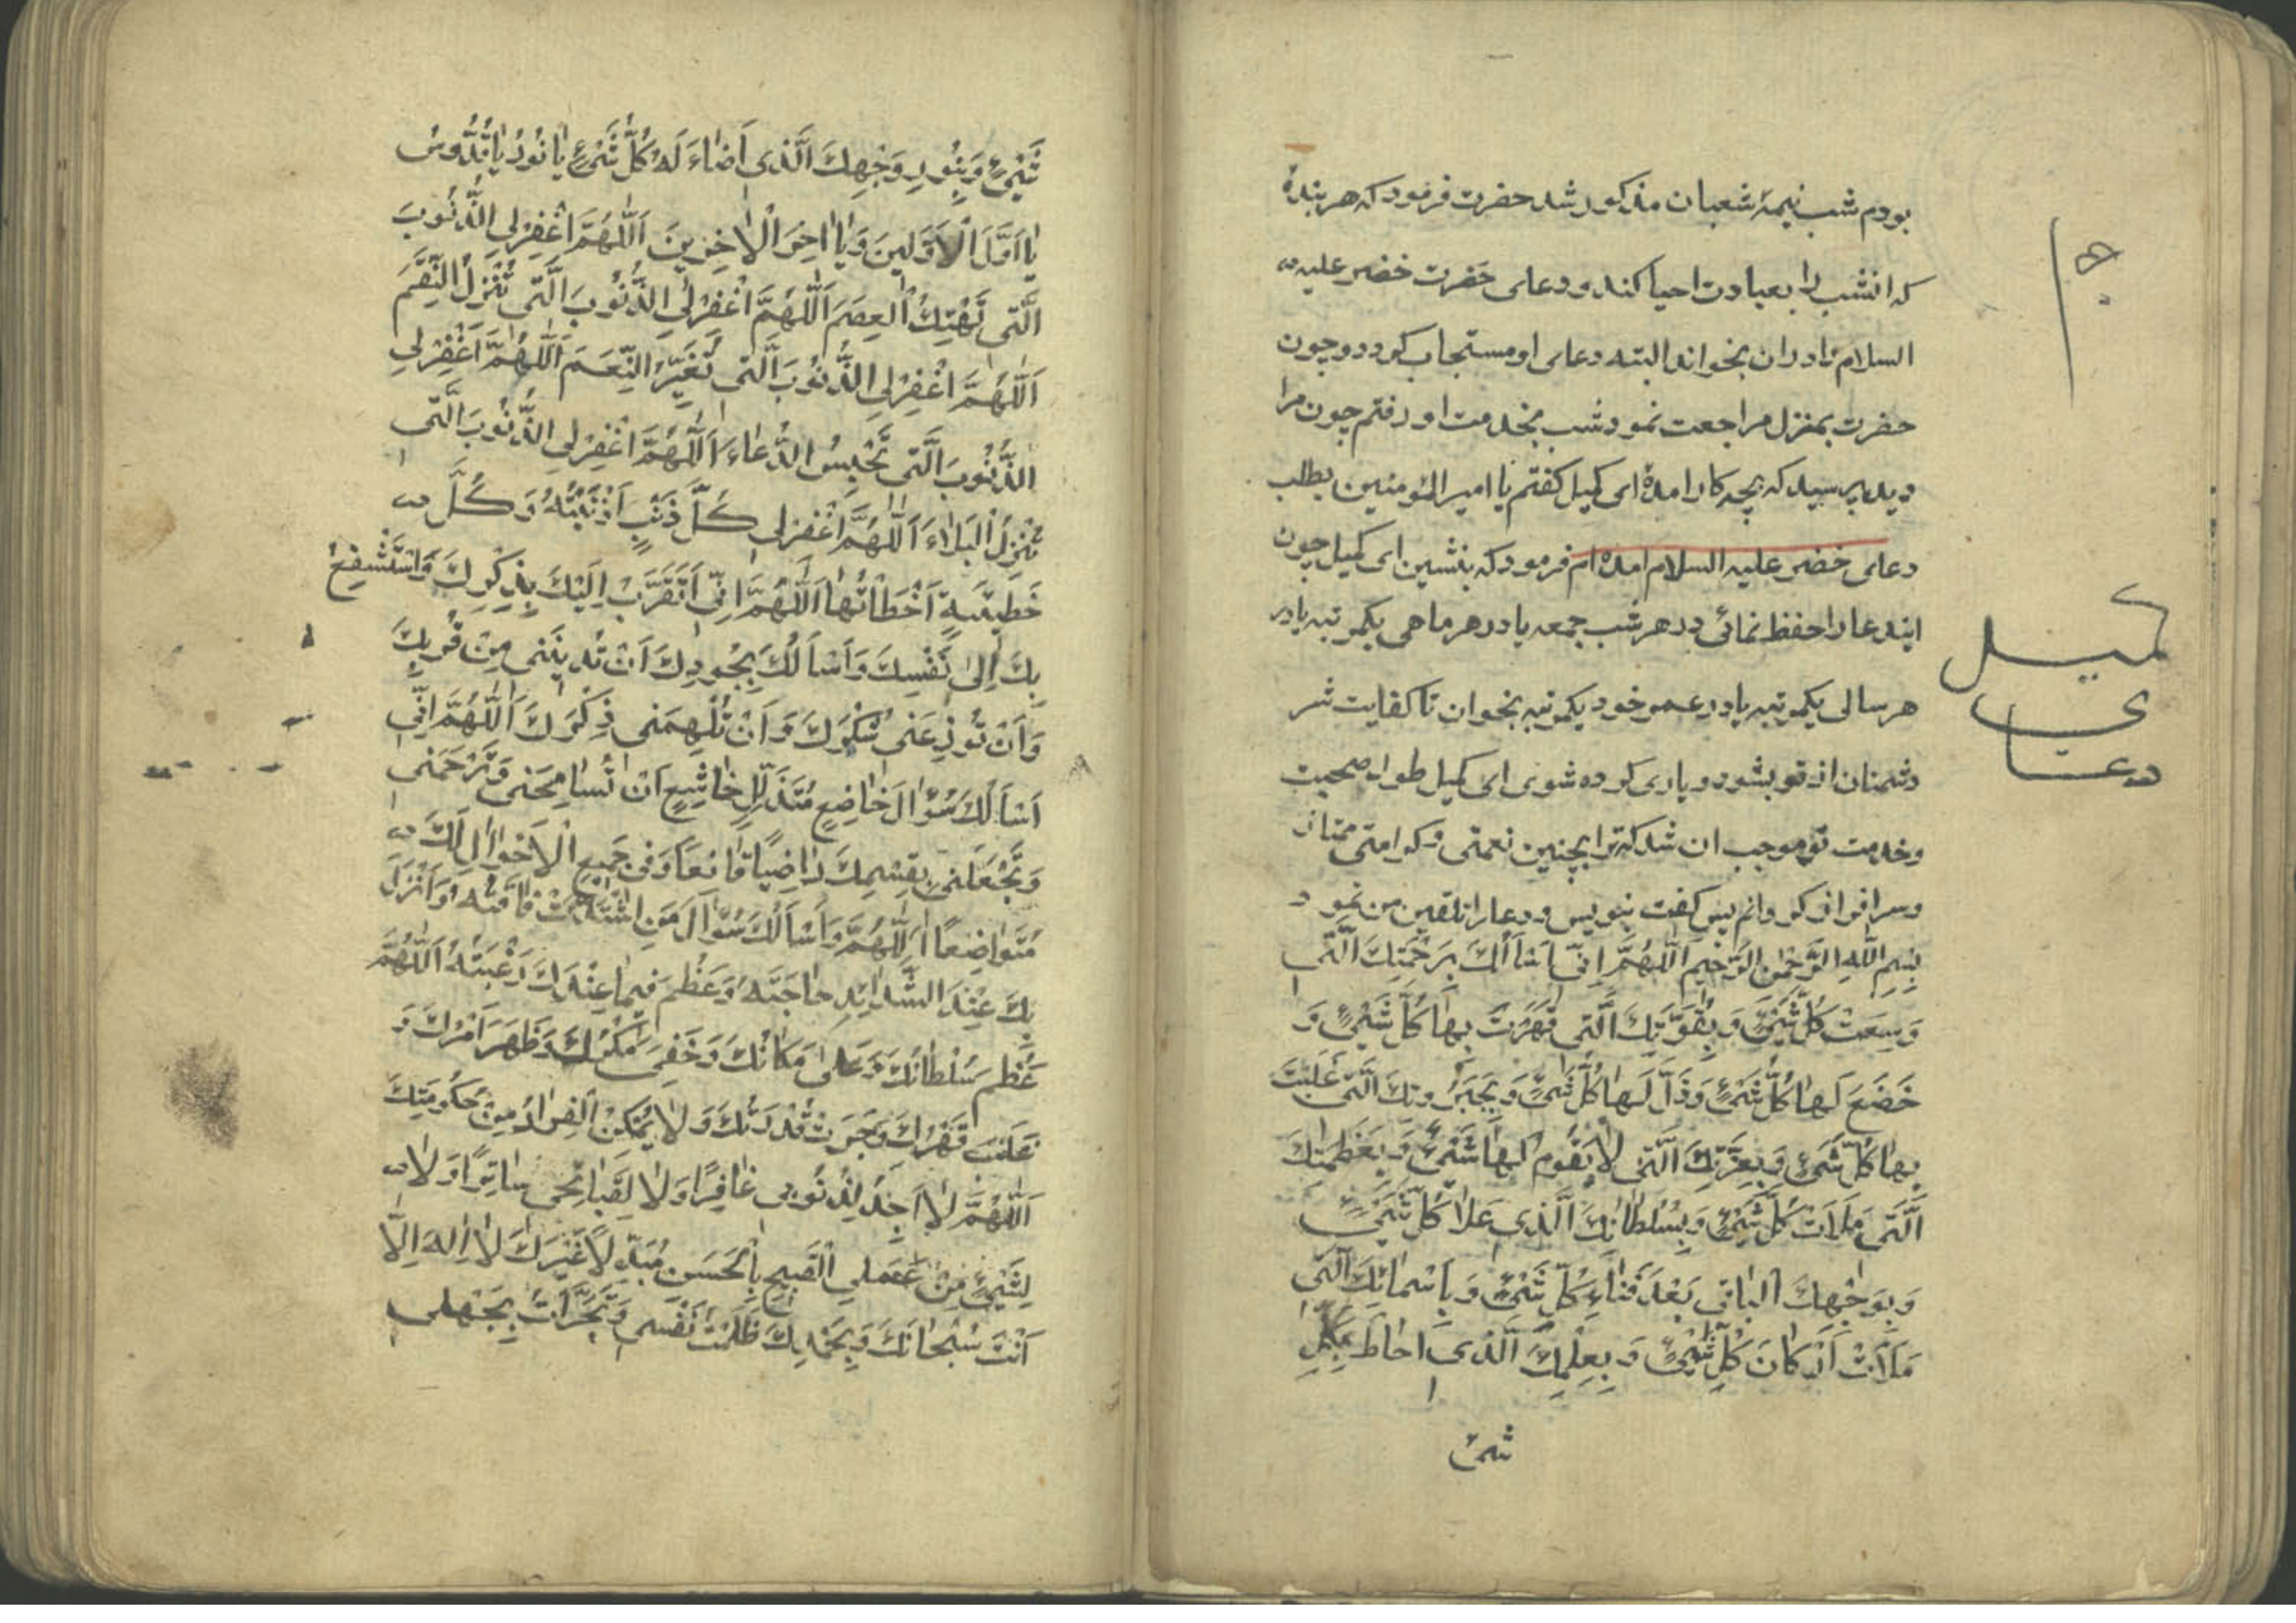 بودم شب نیمهٔ شعبان مذکور شد حضرت فرمود که هر بندهٔ
که انشب را بعبادت احیا کند و دعای حضرت خضر علیه
السلام را در ان بخواند البته دعای او مستجاب کردد و چون
حضرت بمنزل مراجعت نمود شب بخدمت او رفتم چون مرا
دید پرسید که بچه کار امدهٔ ای کمیل کفتم یا امیر المؤمنین بطلب
دعای خضر علیه السلام امده ام فرمود که بنشین ای کمیل چون
ایندعا را حفظ نمائی در هر شب جمعه یا در هر ماهی یکمرتبه یا در
هر سالی یکمرتبه یا در عمر خود یکمرتبه بخوان تا کفایت شر
دشمنان از تو بشود و یاری کرده شوی ای کمیل طول صحبت
وخدمت تو موجب ان شد که ترا بچنین نعمتی و کرامتی ممتاز
وسرافراز کردانم پس کفت بنویس و دعا را تلقین من نمود
بِسْمِ اللّٰهِ الرَّحْمٰنِ الرَّحیمِ اَللّٰهُمَّ اِنّی اَسْاَلُكَ بِرَحْمَتِكَ الَّتی
وَسِعَتْ كُلَّ شَیْئٍ وَ بِقُوَّتِكَ الَّتی قَهَرْتَ بِهٰا كُلَّ شَیْئٍ وَ
خَضَعَ لَهٰا كُلُّ شَیْئٍ وَ ذَلَّ لَهٰا كُلُّ شَیْئٍ وَ بِجَبَرُوتِكَ الَّتی غَلَبْتَ
بِهٰا كُلَّ شَیْئٍ وَ بِعِزَّتِكَ الَّتی لاٰ یَقُومُ لَهٰا شَیْئٌ وَ بِعَظَمَتِكَ
الَّتی مَلَاَتْ كُلَّ شَیْئٍ وَ بِسُلْطٰانِكَ الَّذی عَلاٰ كُلَّ شَیْئٍ
وَ بِوَجْهِكَ الْبٰاقی بَعْدَ فَنٰاءِ كُلِّ شَیْئٍ وَ بِاَسْمٰائِكَ الَّتی
مَلَاَتْ اَرْكٰانَ كُلِّ شَیْئٍ وَ بِعِلْمِكَ الَّذی احٰاطَ بِكُلِّ
شیئ
کمیل
دعای
شَیْئٍ وَ بِنُورِ وَجْهِكَ الَّذی اَضٰاءَ لَهُ كُلُّ شَیْئٍ یٰا نُورُ یٰا قُدُّوسُ
یٰا اَوَّلَ الْاَوَّلینَ وَ یٰا اٰخِرَ الْاٰخِرینَ اَللّٰهُمَّ اغْفِرْ لِیَ الذُّنُوبَ
الَّتی تَهْتِكُ الْعِصَمَ اَللّٰهُمَّ اغْفِرْ لِیَ الذُّنُوبَ الَّتی تُنْزِلُ النِّقَمَ
اَللّٰهُمَّ اغْفِرْ لِیَ الذُّنُوبَ الَّتی تُغَیِّرُ النِّعَمَ اَللّٰهُمَّ اغْفِرْ لِی
الذُّنُوبَ الَّتی تَحْبِسُ الدُّعٰاءَ اَللّٰهُمَّ اغْفِرْ لِی الذُّنُوبَ الَّتی
تُنْزِلُ الْبَلاٰءَ اَللّٰهُمَّ اغْفِرْ لی كُلَّ ذَنْبٍ اَذْنَبْتُهُ وَ كُلَّ
خَطیئَةٍ اَخْطَأْتُهٰا اَللّٰهُمَّ اِنّی اَتَقَرَّبُ اِلَیْكَ بِذِكْرِكَ وَ اَسْتَشْفِعُ
بِكَ اِلیٰ نَفْسِكَ وَ اَسْاَلُكَ بِجُودِكَ اَنْ تُدْنِیَنی مِنْ قُرْبِكَ
وَ اَنْ تُوزِعَنی شُكْرَكَ وَ اَنْ تُلْهِمَنی ذِكْرَكَ اَللّٰهُمَّ اِنّی
اَسْاَلُكَ سُؤٰالَ خٰاضِعٍ مُتَذَلِّلٍ خٰاشِعٍ اَنْ تُسٰامِحَنی وَ تَرْحَمَنی
وَ تَجْعَلَنی بِقِسْمِكَ رٰاضِیًا قٰانِعًا وَ فی جَمیعِ الْاَحْوٰالِ لَكَ
مُتَوٰاضِعًا اَللّٰهُمَّ وَ اَسْاَلُكَ سُؤٰالَ مَنِ اشْتَدَّتْ فٰاقَتُهُ وَ اَنْزَلَ
بِكَ عِنْدَ الشَّدٰائِدِ حٰاجَتَهُ وَ عَظُمَ فیمٰا عِنْدَكَ رَغْبَتُهُ اَللّٰهُمَّ
عَظُمَ سُلْطٰانُكَ وَ عَلیٰ مَكٰانُكَ وَ خَفِیَ مَكْرُكَ وَ ظَهَرَ اَمْرُكَ وَ
غَلَبَ قَهْرُكَ وَ جَرَتْ قُدْرَتُكَ وَ لاٰ یُمْكِنُ الْفِرٰارُ مِنْ حُكُومَتِكَ
اَللّٰهُمَّ لاٰ اَجِدُ لِذُنُوبی غٰافِرًا وَ لاٰ لِقَبٰائِحی سٰاتِرًا وَ لاٰ
لِشَیْئٍ مِنْ عَمَلِی الْقَبیحِ بِالْحَسَنِ مُبَدِّلاً غَیْرَكَ لاٰ اِلٰهَ اِلّٰا
اَنْتَ سُبْحٰانَكَ وَ بِحَمْدِكَ ظَلَمْتُ نَفْسی وَ تَجَرَّأْتُ بِجَهْلی